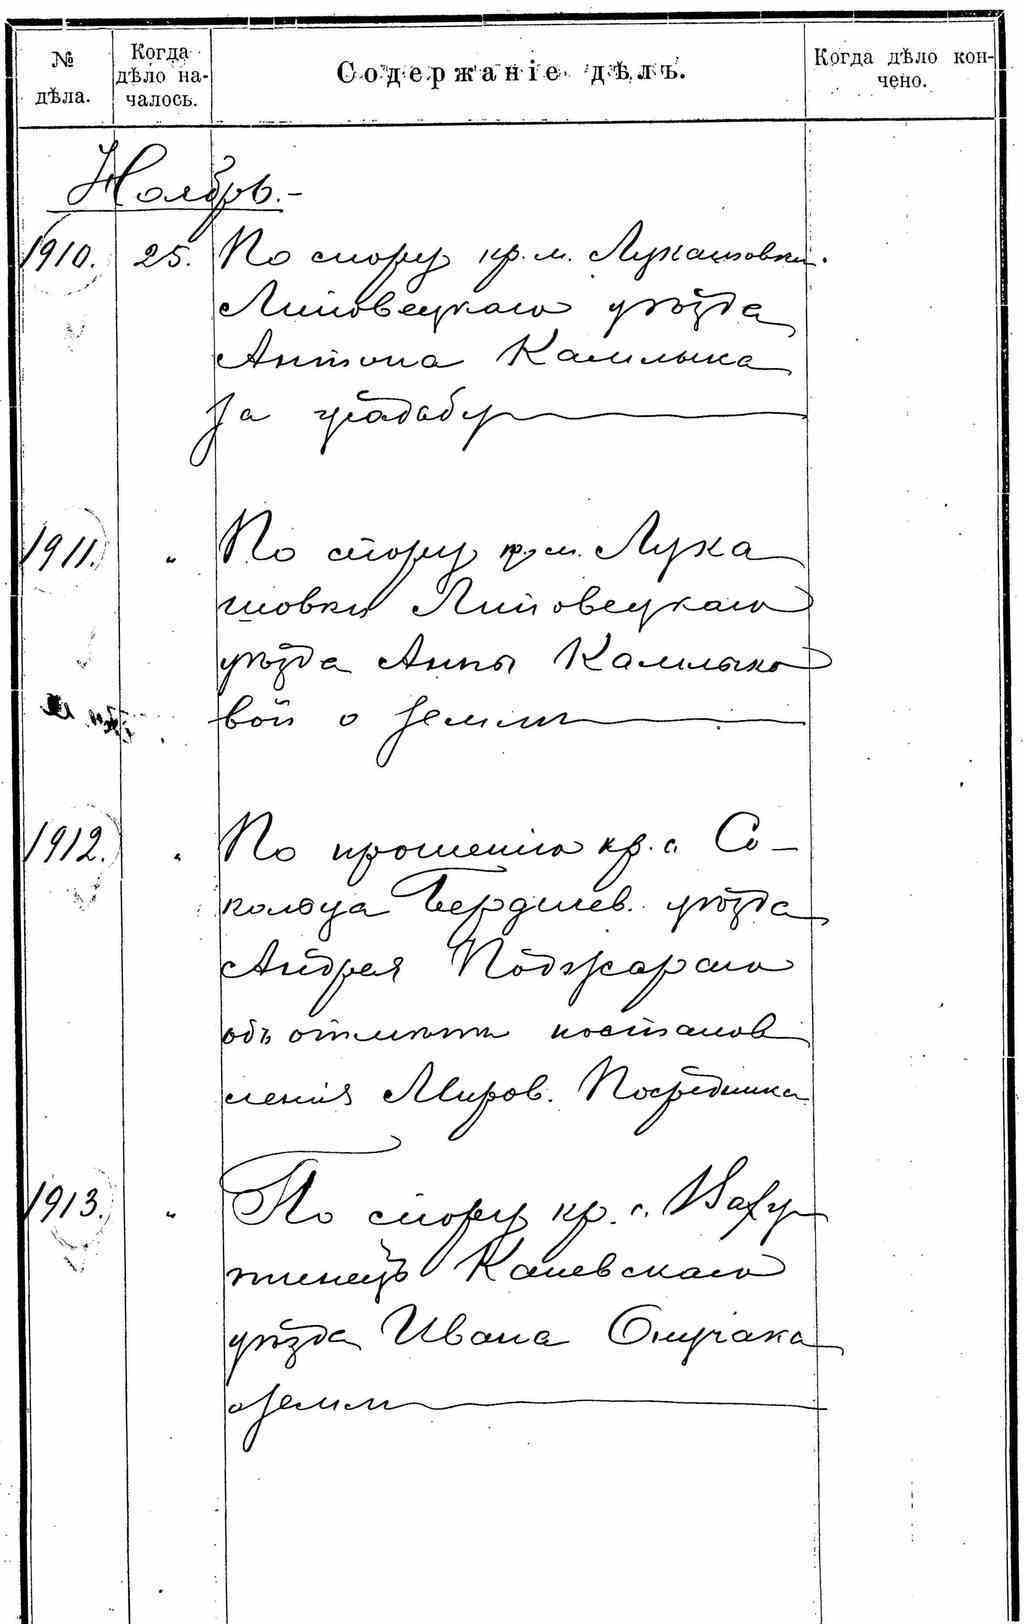 № дѣла.
Когда дѣло на-
чалось.
Содержаніе дѣлъ.
Когда дѣло кон-
чено.
Ноябрь.-
1910. 25. По спору кр. м. Лукашовки
Липовецкаго уѣзда
Антона Калмыка
за усадьбу
1911. " По спору кр. м. Лука
шовки Липовецкаго
уѣзда Анны Калмыко
вой о землѣ
1912. " По прошенію кр. с. Со-
колоча Бердичев. уѣзда
Андрея Поджараго
объ отмѣнѣ постанов
ленія Миров. Посредника
1913. " По спору кр. с.
тинецъ Каневскаго
уѣзда Ивана Онучака
о землѣ